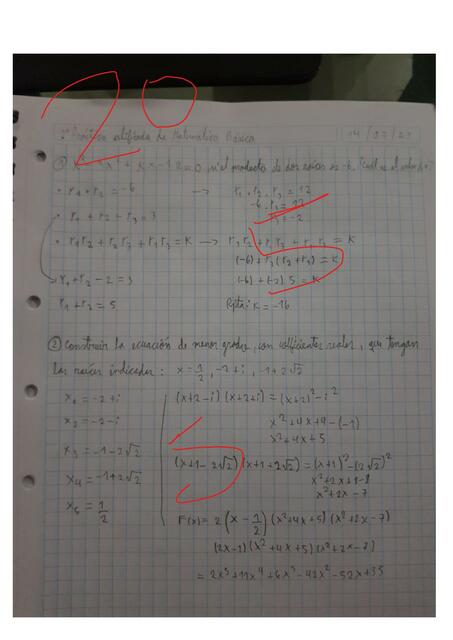 20
Práctica calificada de Matemática Básica
14 / 07 / 21
① x³ - 3x² + Kx - 12 = 0 si el producto de dos raíces es -6, ¿Cuál es el valor
• r₁ • r₂ = -6 → r₁ . r₂ . r₃ = 12
-6 . r₃ = 12
• r₁ + r₂ + r₃ = 3 r₃ = -2
• r₁r₂ + r₂r₃ + r₁r₃ = K → r₁r₂ + r₁r₃ + r₂r₃ = K
(-6) + r₃(r₂ + r₁) = K
r₁ + r₂ - 2 = 3 (-6) + (-2) 5 = K
r₁ + r₂ = 5 Rpta: K = -16
② Construir la ecuación de menor grado, con coeficientes reales, que tengan
las raíces indicadas: x = 1/2, -2+i, -1+2√2
5
x₁ = -2+i (x+2-i)(x+2+i) = (x+2)² - i²
x₂ = -2-i x² + 4x + 4 - (-1)
x² + 4x + 5
x₃ = -1-2√2 (x+1-2√2)(x+1+2√2) = (x+1)² - (2√2)²
x₄ = -1+2√2 x² + 2x + 1 - 8
x² + 2x - 7
x₅ = 1/2 F(x) = 2(x - 1/2)(x² + 4x + 5)(x² + 2x - 7)
(2x-1)(x² + 4x + 5)(x² + 2x - 7)
= 2x⁵ + 11x⁴ + 6x³ - 42x² - 52x + 35